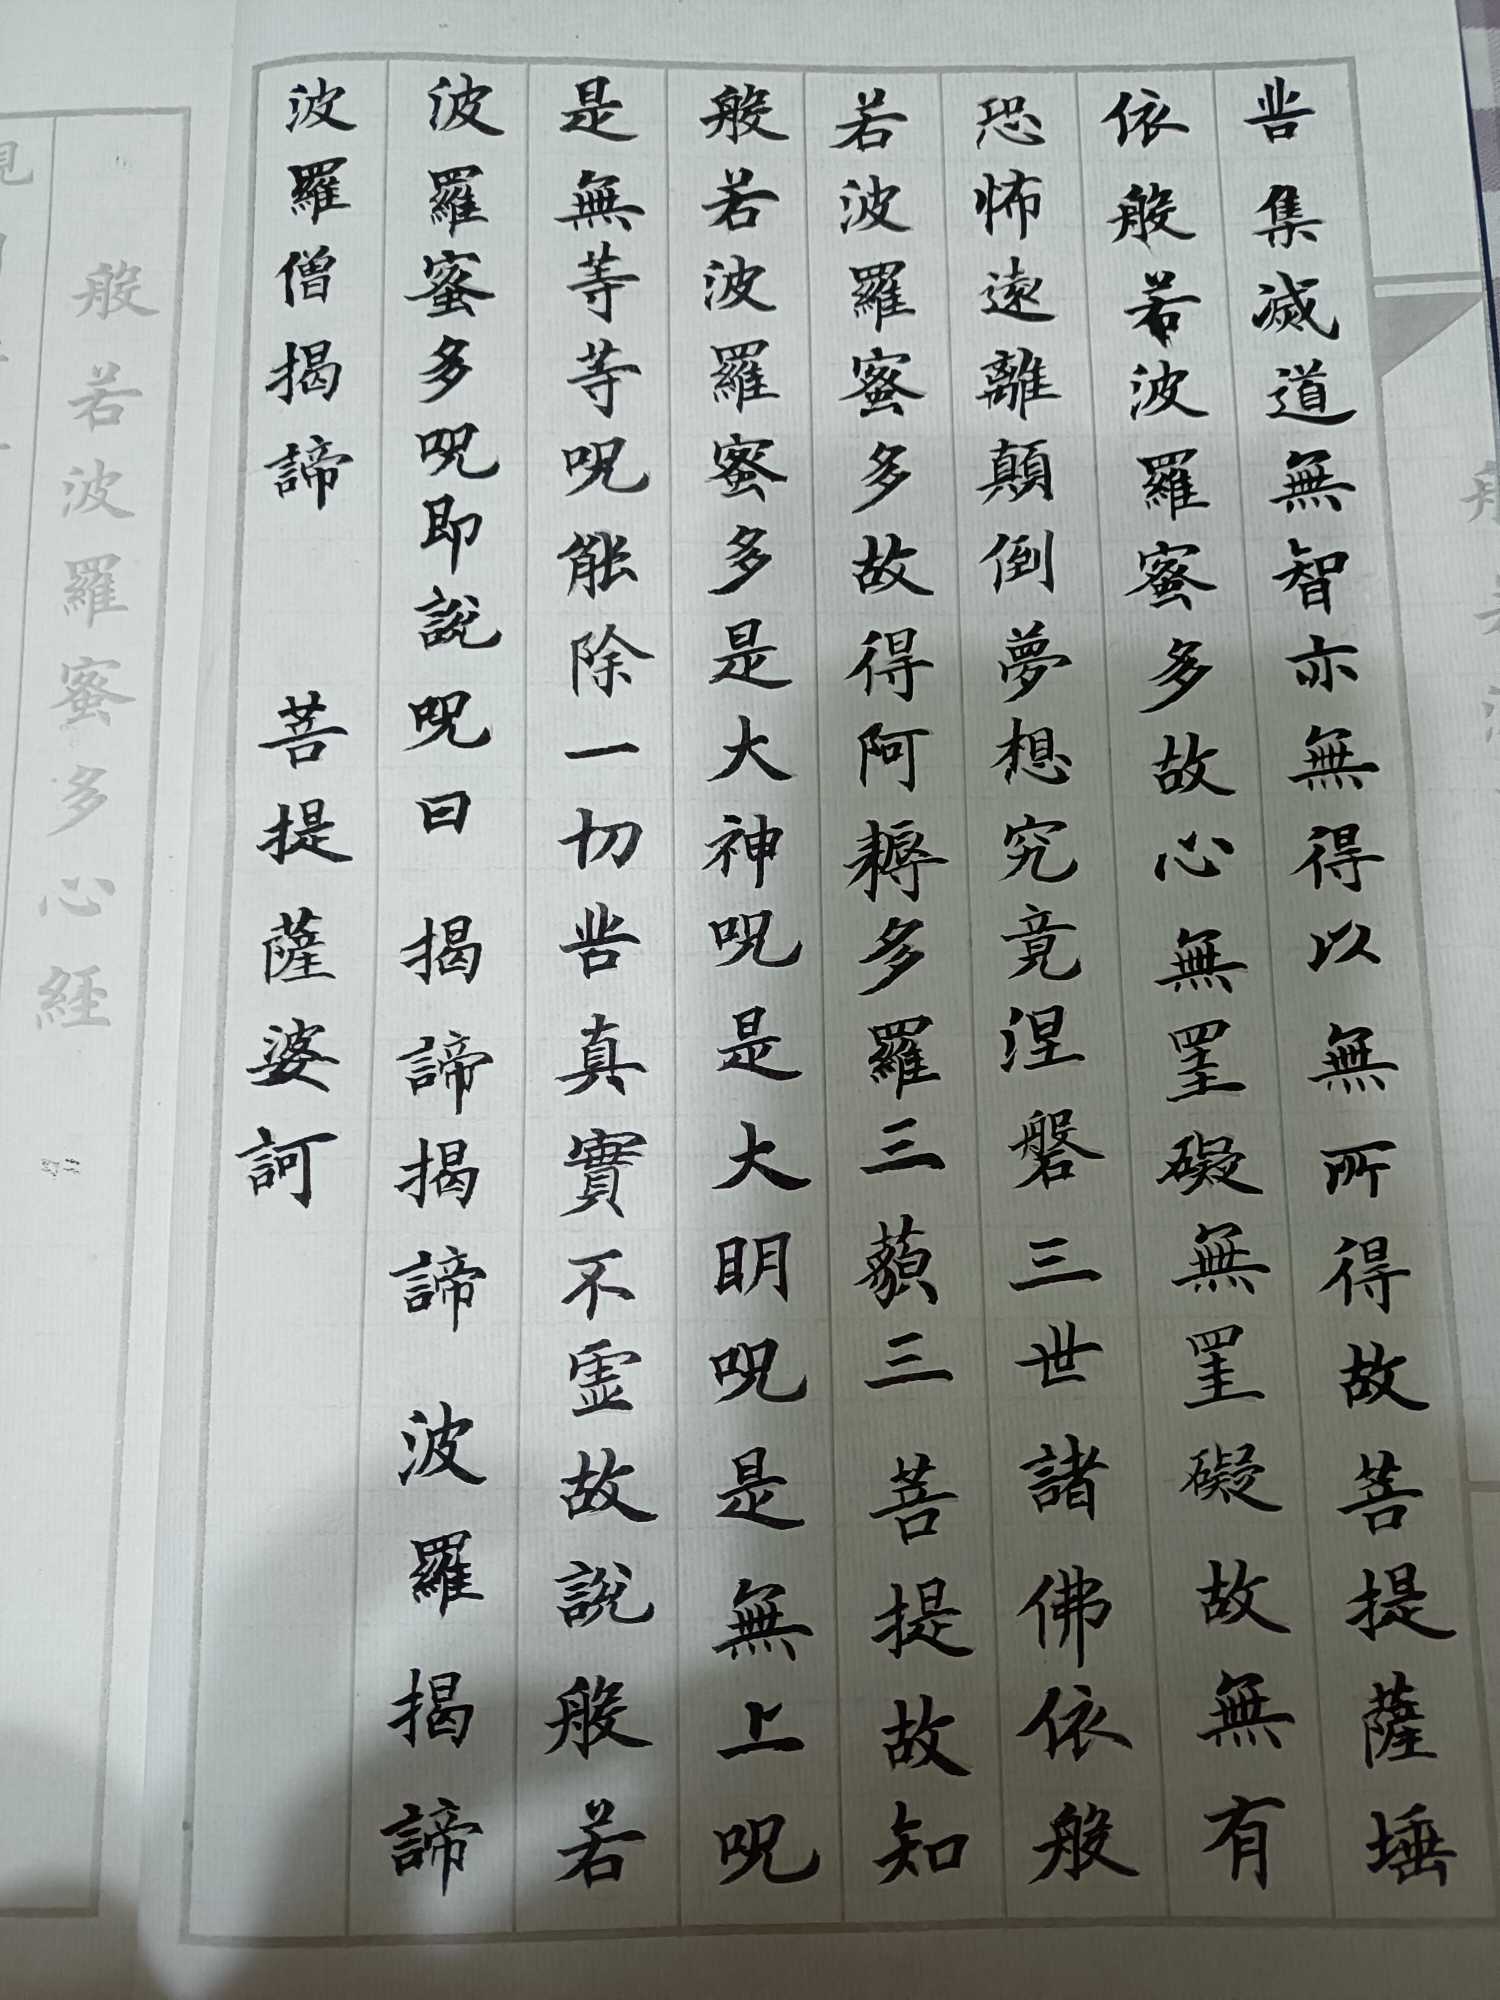 苦集滅道無智亦無得以無所得故菩提薩埵
依般若波羅蜜多故心無罣礙無罣礙故無有
恐怖遠離顛倒夢想究竟涅磐三世諸佛依般
若波羅蜜多故得阿耨多羅三藐三菩提故知
般若波羅蜜多是大神呪是大明呪是無上呪
是無等等呪能除一切苦真實不虛故說般若
波羅蜜多呪即說呪曰 揭諦揭諦 波羅揭諦
波羅僧揭諦 菩提薩婆訶
般若波羅蜜多心經